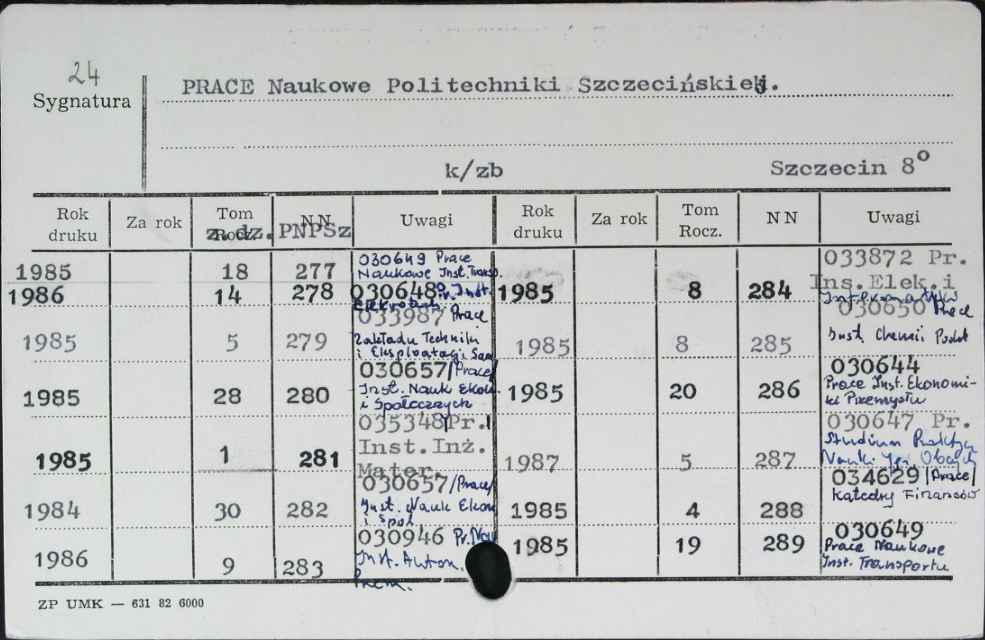 24
Sygnatura
PRACE Naukowe Politechniki Szczecińskiej.
k/zb Szczecin 8°
Rok druku Za rok Tom Rocz. z.dz. NN PNPSz Uwagi Rok druku Za rok Tom Rocz. NN Uwagi
1985 18 277 030649 Prace Naukowe Inst. Transp.
1986 14 278 030648 Pr. Inst.
1985 5 279 033987 Prace Zakładu Techniki i Eksploatacji Sam
1985 28 280 030657/Prace/ Inst. Nauk Ekon i Społecznych
1985 1 281 035348/Pr. Inst. Inż. Mater.
1984 30 282 030657/Prace/ Inst. Nauk Ekon i Społ
1986 9 283 030946 Pr. Nau Inst. Autom. Przem.
1985 8 284 033872 Pr. Ins. Elek. i Informatyki
1985 8 285 030650 Prace Inst. Chemii Podst
1985 20 286 030644 Prace Inst. Ekonomi-ki Przemysłu
1987 5 287 030647 Pr. Studium Praktycz Nauki Jęz. Obcych
1985 4 288 034629/Prace/ Katedry Finansów
1985 19 289 030649 Prace Naukowe Inst. Transportu
ZP UMK — 631 82 6000